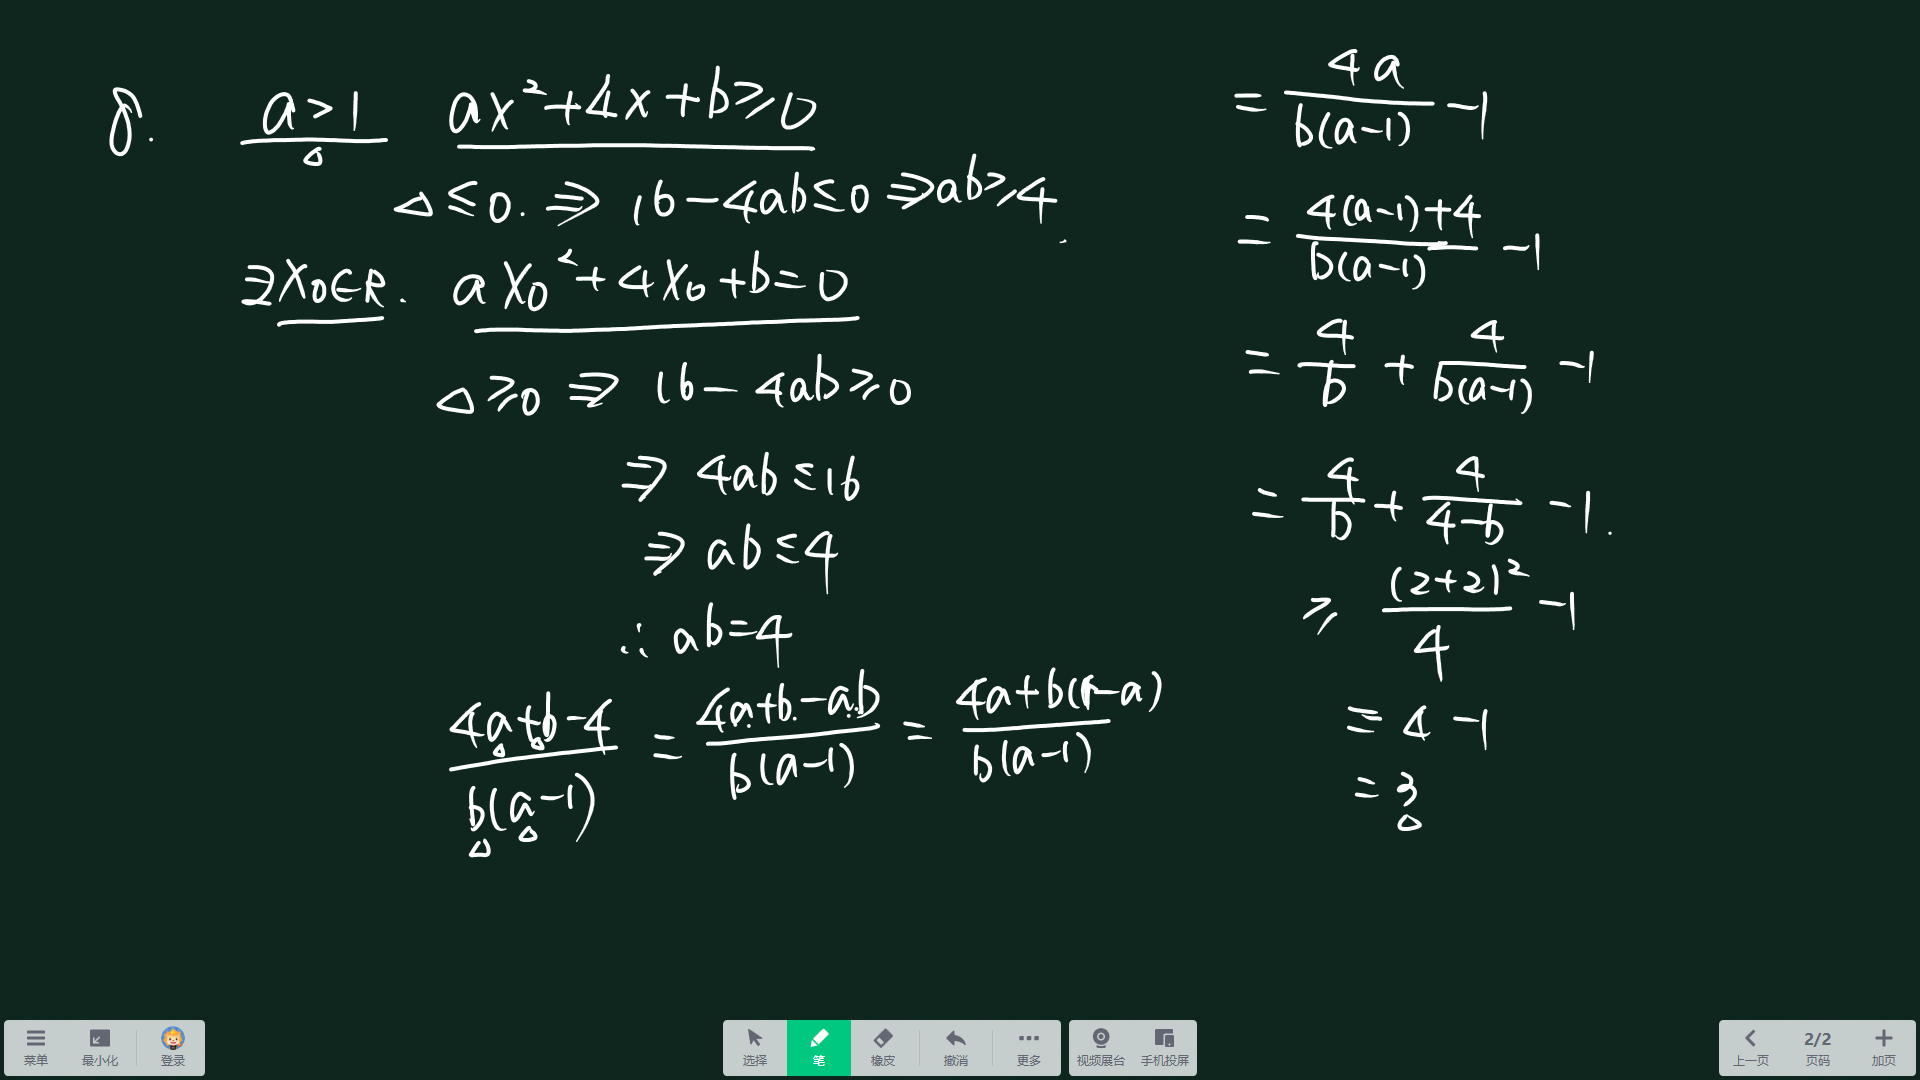 8. a>1 ax²+4x+b≥0
△≤0. ⇒ 16-4ab≤0 ⇒ab≥4
∃x₀∈R. ax₀²+4x₀+b=0
△≥0 ⇒ 16-4ab≥0
⇒ 4ab≤16
⇒ ab≤4
∴ ab=4
(4a+b-4)/(b(a-1)) = (4a+b-ab)/(b(a-1)) = (4a+b(1-a))/(b(a-1))
= 4a/(b(a-1)) -1
= (4(a-1)+4)/(b(a-1)) -1
= 4/b + 4/(b(a-1)) -1
= 4/b + 4/(4-b) -1.
≥ (2+2)²/4 -1
= 4-1
= 3
菜单 最小化 登录 选择 笔 橡皮 撤消 更多 视频展台 手机投屏 上一页 2/2 页码 加页